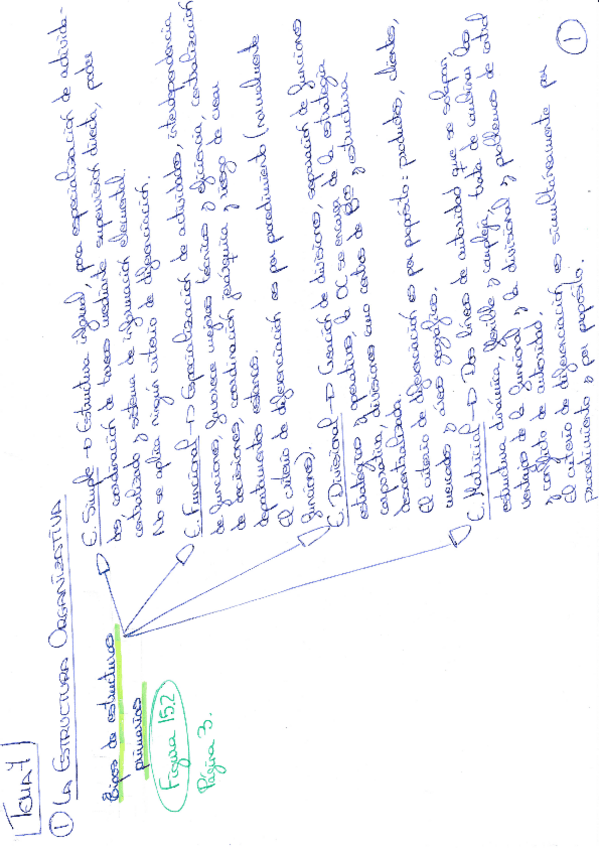 TEMA 7
① LA ESTRUCTURA ORGANIZATIVA
Tipos de estructuras
primarias
Figura 15.2
Página 3.
E. Simple → Estructura informal, poca especialización de activida-
des, coordinación de tareas mediante supervisión directa, poder
centralizado y sistema de información elemental.
No se aplica ningún criterio de diferenciación.
E. Funcional → Especialización de actividades, interdependencia
de funciones, favorece mejoras técnicas y eficiencia, centralización
de decisiones, coordinación jerárquica y riesgo de crear
departamentos estancos.
El criterio de diferenciación es por procedimiento (normalmente
funciones).
E. Divisional → Creación de divisiones, separación de funciones
estratégicas y operativas, la OC se encarga de la estrategia
corporativa, divisiones como centros de Bº y estructura
descentralizada.
El criterio de diferenciación es por propósito: productos, clientes,
mercados y áreas geográficas.
E. Matricial → Dos líneas de autoridad que se solapan,
estructura dinámica, flexible y compleja, trata de combinar las
ventajas de la funcional y la divisional y problemas de control
y conflicto de autoridad.
El criterio de diferenciación es simultáneamente por
procedimiento y por propósito.
①